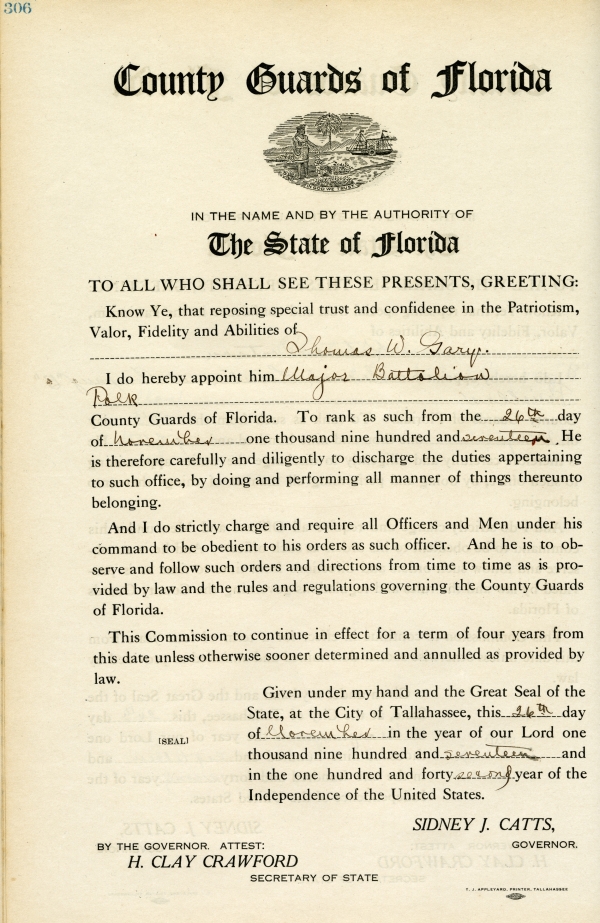 306
County Guards of Florida
IN GOD WE TRUST
IN THE NAME AND BY THE AUTHORITY OF
The State of Florida
TO ALL WHO SHALL SEE THESE PRESENTS, GREETING:
Know Ye, that reposing special trust and confidenee in the Patriotism,
Valor, Fidelity and Abilities of
Thomas W. Gary.
I do hereby appoint him Major Battalion
Polk
County Guards of Florida. To rank as such from the 26th day
of November one thousand nine hundred and seventeen. He
is therefore carefully and diligently to discharge the duties appertaining
to such office, by doing and performing all manner of things thereunto
belonging.
And I do strictly charge and require all Officers and Men under his
command to be obedient to his orders as such officer. And he is to ob-
serve and follow such orders and directions from time to time as is pro-
vided by law and the rules and regulations governing the County Guards
of Florida.
This Commission to continue in effect for a term of four years from
this date unless otherwise sooner determined and annulled as provided by
law.
Given under my hand and the Great Seal of the
State, at the City of Tallahassee, this 26th day
of November in the year of our Lord one
[SEAL]
thousand nine hundred and seventeen and
in the one hundred and forty second year of the
Independence of the United States.
SIDNEY J. CATTS,
GOVERNOR.
BY THE GOVERNOR. ATTEST:
H. CLAY CRAWFORD
SECRETARY OF STATE
T. J. APPLEYARD, PRINTER, TALLAHASSEE